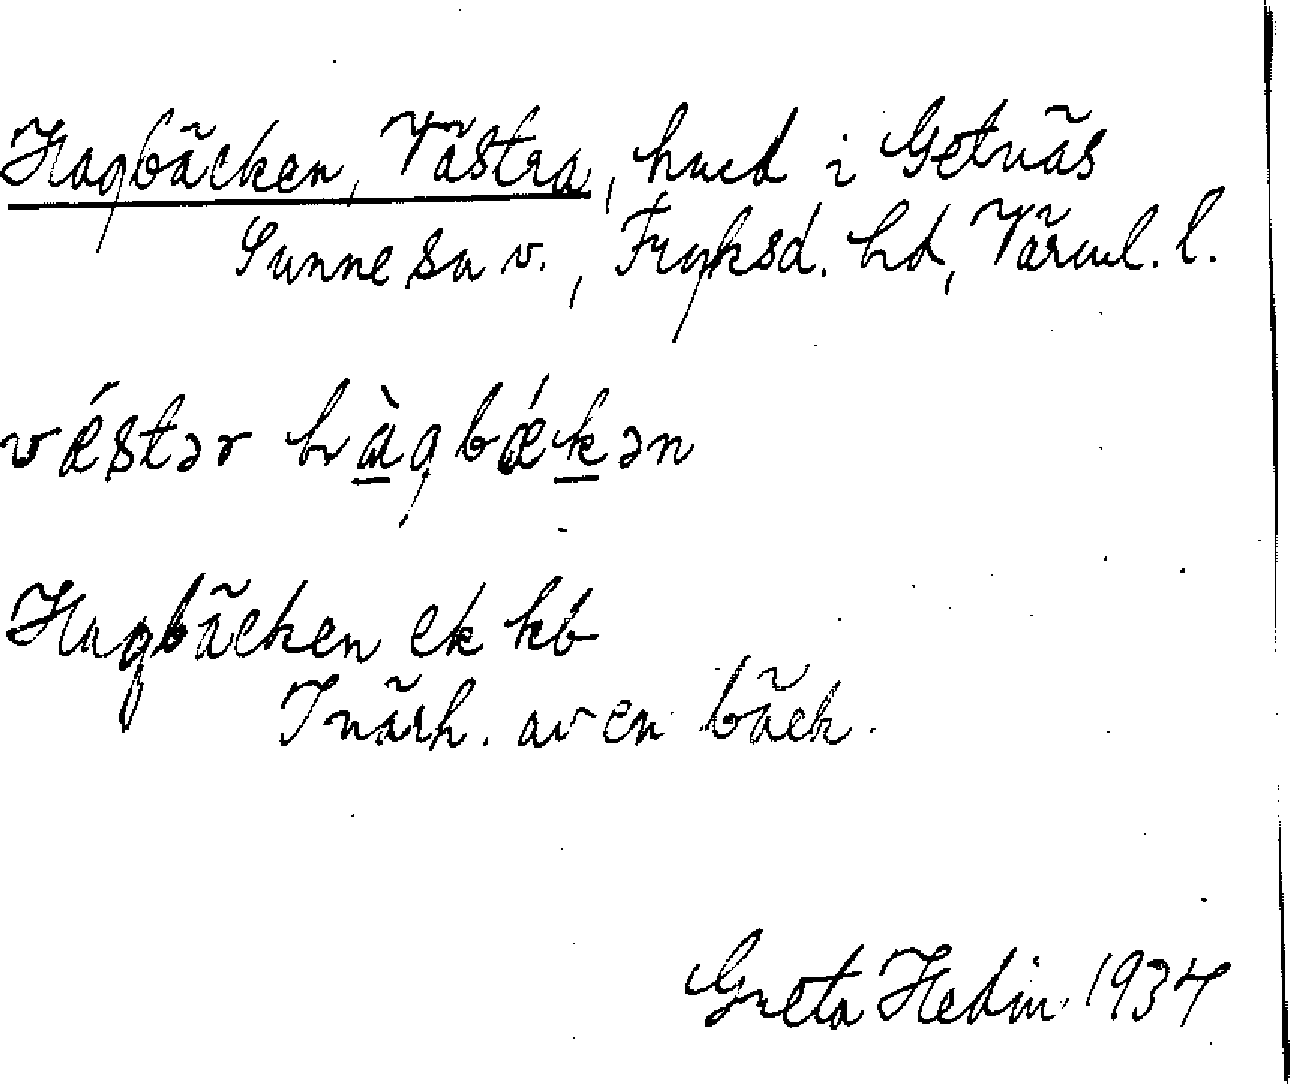 Hagbäcken, Västra, hned i Getnäs
Sunne sn v., Fryksd. hd, Värml. l.
vǽstər hàgbǽkən
Hagbäcken ek kb
I närh. av en bäck.
Greta Hedin 1934